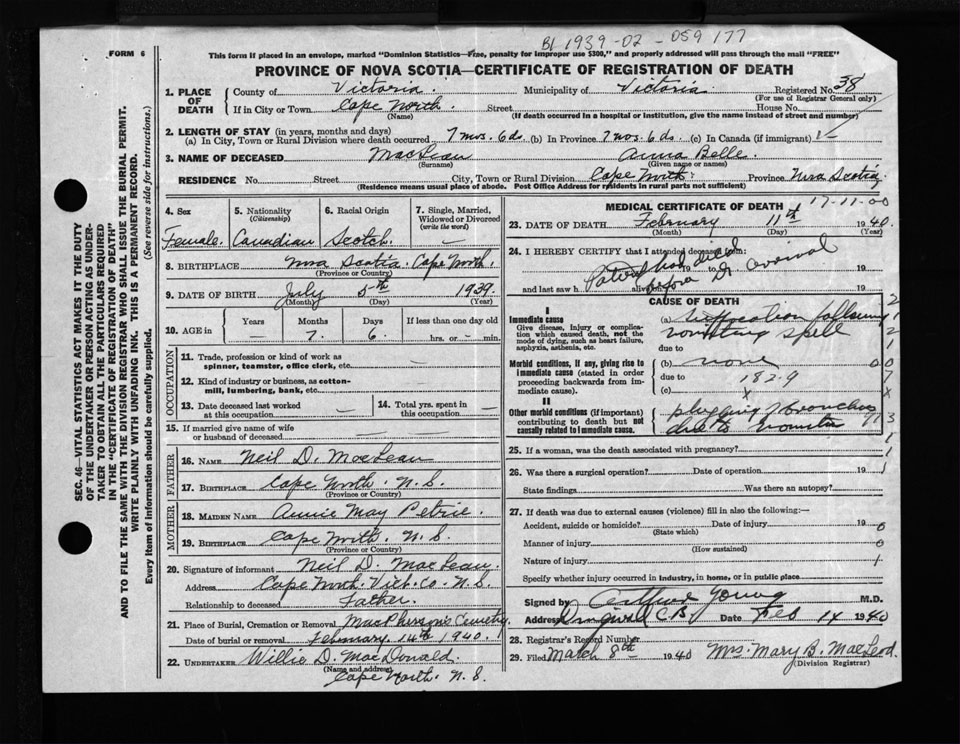 BL 1939-02-059177
FORM 6
This form if placed in an envelope, marked "Dominion Statistics—Free, penalty for improper use $300," and properly addressed will pass through the mail "FREE"
PROVINCE OF NOVA SCOTIA—CERTIFICATE OF REGISTRATION OF DEATH
SEC. 46—VITAL STATISTICS ACT MAKES IT THE DUTY
OF THE UNDERTAKER OR PERSON ACTING AS UNDER-
TAKER TO OBTAIN ALL THE PARTICULARS REQUIRED
IN THE "CERTIFICATE OF REGISTRATION OF DEATH"
AND TO FILE THE SAME WITH THE DIVISION REGISTRAR WHO SHALL ISSUE THE BURIAL PERMIT.
WRITE PLAINLY WITH UNFADING INK. THIS IS A PERMANENT RECORD.
Every item of information should be carefully supplied. (See reverse side for instructions.)
1. PLACE OF DEATH County of Victoria. Municipality of Victoria. Registered No. 38
(For use of Registrar General only)
If in City or Town Cape North. Street House No.
(Name) (If death occurred in a hospital or institution, give the name instead of street and number)
2. LENGTH OF STAY (in years, months and days)
(a) In City, Town or Rural Division where death occurred 7 mos. 6 ds. (b) In Province 7 mos. 6 ds. (c) In Canada (if immigrant)
3. NAME OF DECEASED MacLean Anna Belle.
(Surname) (Given name or names)
RESIDENCE No. Street City, Town or Rural Division Cape North. Province Nova Scotia
(Residence means usual place of abode. Post Office Address for residents in rural parts not sufficient)
4. Sex Female.
5. Nationality (Citizenship) Canadian
6. Racial Origin Scotch.
7. Single, Married, Widowed or Divorced (write the word) —
8. BIRTHPLACE Nova Scotia. Cape North.
(Province or Country)
9. DATE OF BIRTH July 5th 1939.
(Month) (Day) (Year)
10. AGE in Years — Months 7. Days 6. If less than one day old hrs. or min.
OCCUPATION
11. Trade, profession or kind of work as spinner, teamster, office clerk, etc. —
12. Kind of industry or business, as cotton-mill, lumbering, bank, etc. —
13. Date deceased last worked at this occupation —
14. Total yrs. spent in this occupation —
15. If married give name of wife or husband of deceased —
FATHER
16. NAME Neil D. MacLean
17. BIRTHPLACE Cape North. N.S.
(Province or Country)
MOTHER
18. MAIDEN NAME Annie May Petrie.
19. BIRTHPLACE Cape North. N.S.
(Province or Country)
20. Signature of informant Neil D. MacLean.
Address Cape North. Vict. Co. N.S.
Relationship to deceased Father.
21. Place of Burial, Cremation or Removal MacPherson's Cemetry
Date of burial or removal February 14th 1940.
22. UNDERTAKER Willie D. MacDonald.
(Name and address)
Cape North. N.S.
MEDICAL CERTIFICATE OF DEATH 17-11-00
23. DATE OF DEATH February 11th 1940.
(Month) (Day) (Year)
24. I HEREBY CERTIFY that I attended deceased from
19 to 19
and last saw h alive on 19
before Dr arrival
CAUSE OF DEATH
I
Immediate cause
Give disease, injury or complication which caused death, not the mode of dying, such as heart failure, asphyxia, asthenia, etc.
(a) suffocation following
vomiting spell
due to
Morbid conditions, if any, giving rise to immediate cause (stated in order proceeding backwards from immediate cause).
(b) none
due to 1829
(c) x
II
Other morbid conditions (if important) contributing to death but not causally related to immediate cause.
plugging of bronchus
due to vomitus
25. If a woman, was the death associated with pregnancy?
26. Was there a surgical operation? Date of operation 19
State findings Was there an autopsy?
27. If death was due to external causes (violence) fill in also the following:—
Accident, suicide or homicide? Date of injury 19
(State which)
Manner of injury
(How sustained)
Nature of injury
Specify whether injury occurred in industry, in home, or in public place
Signed by Young M.D.
Address C.B. Date Feb 14 1940
28. Registrar's Record Number
29. Filed March 8th 1940 Mrs. Mary B. MacLeod.
(Division Registrar)